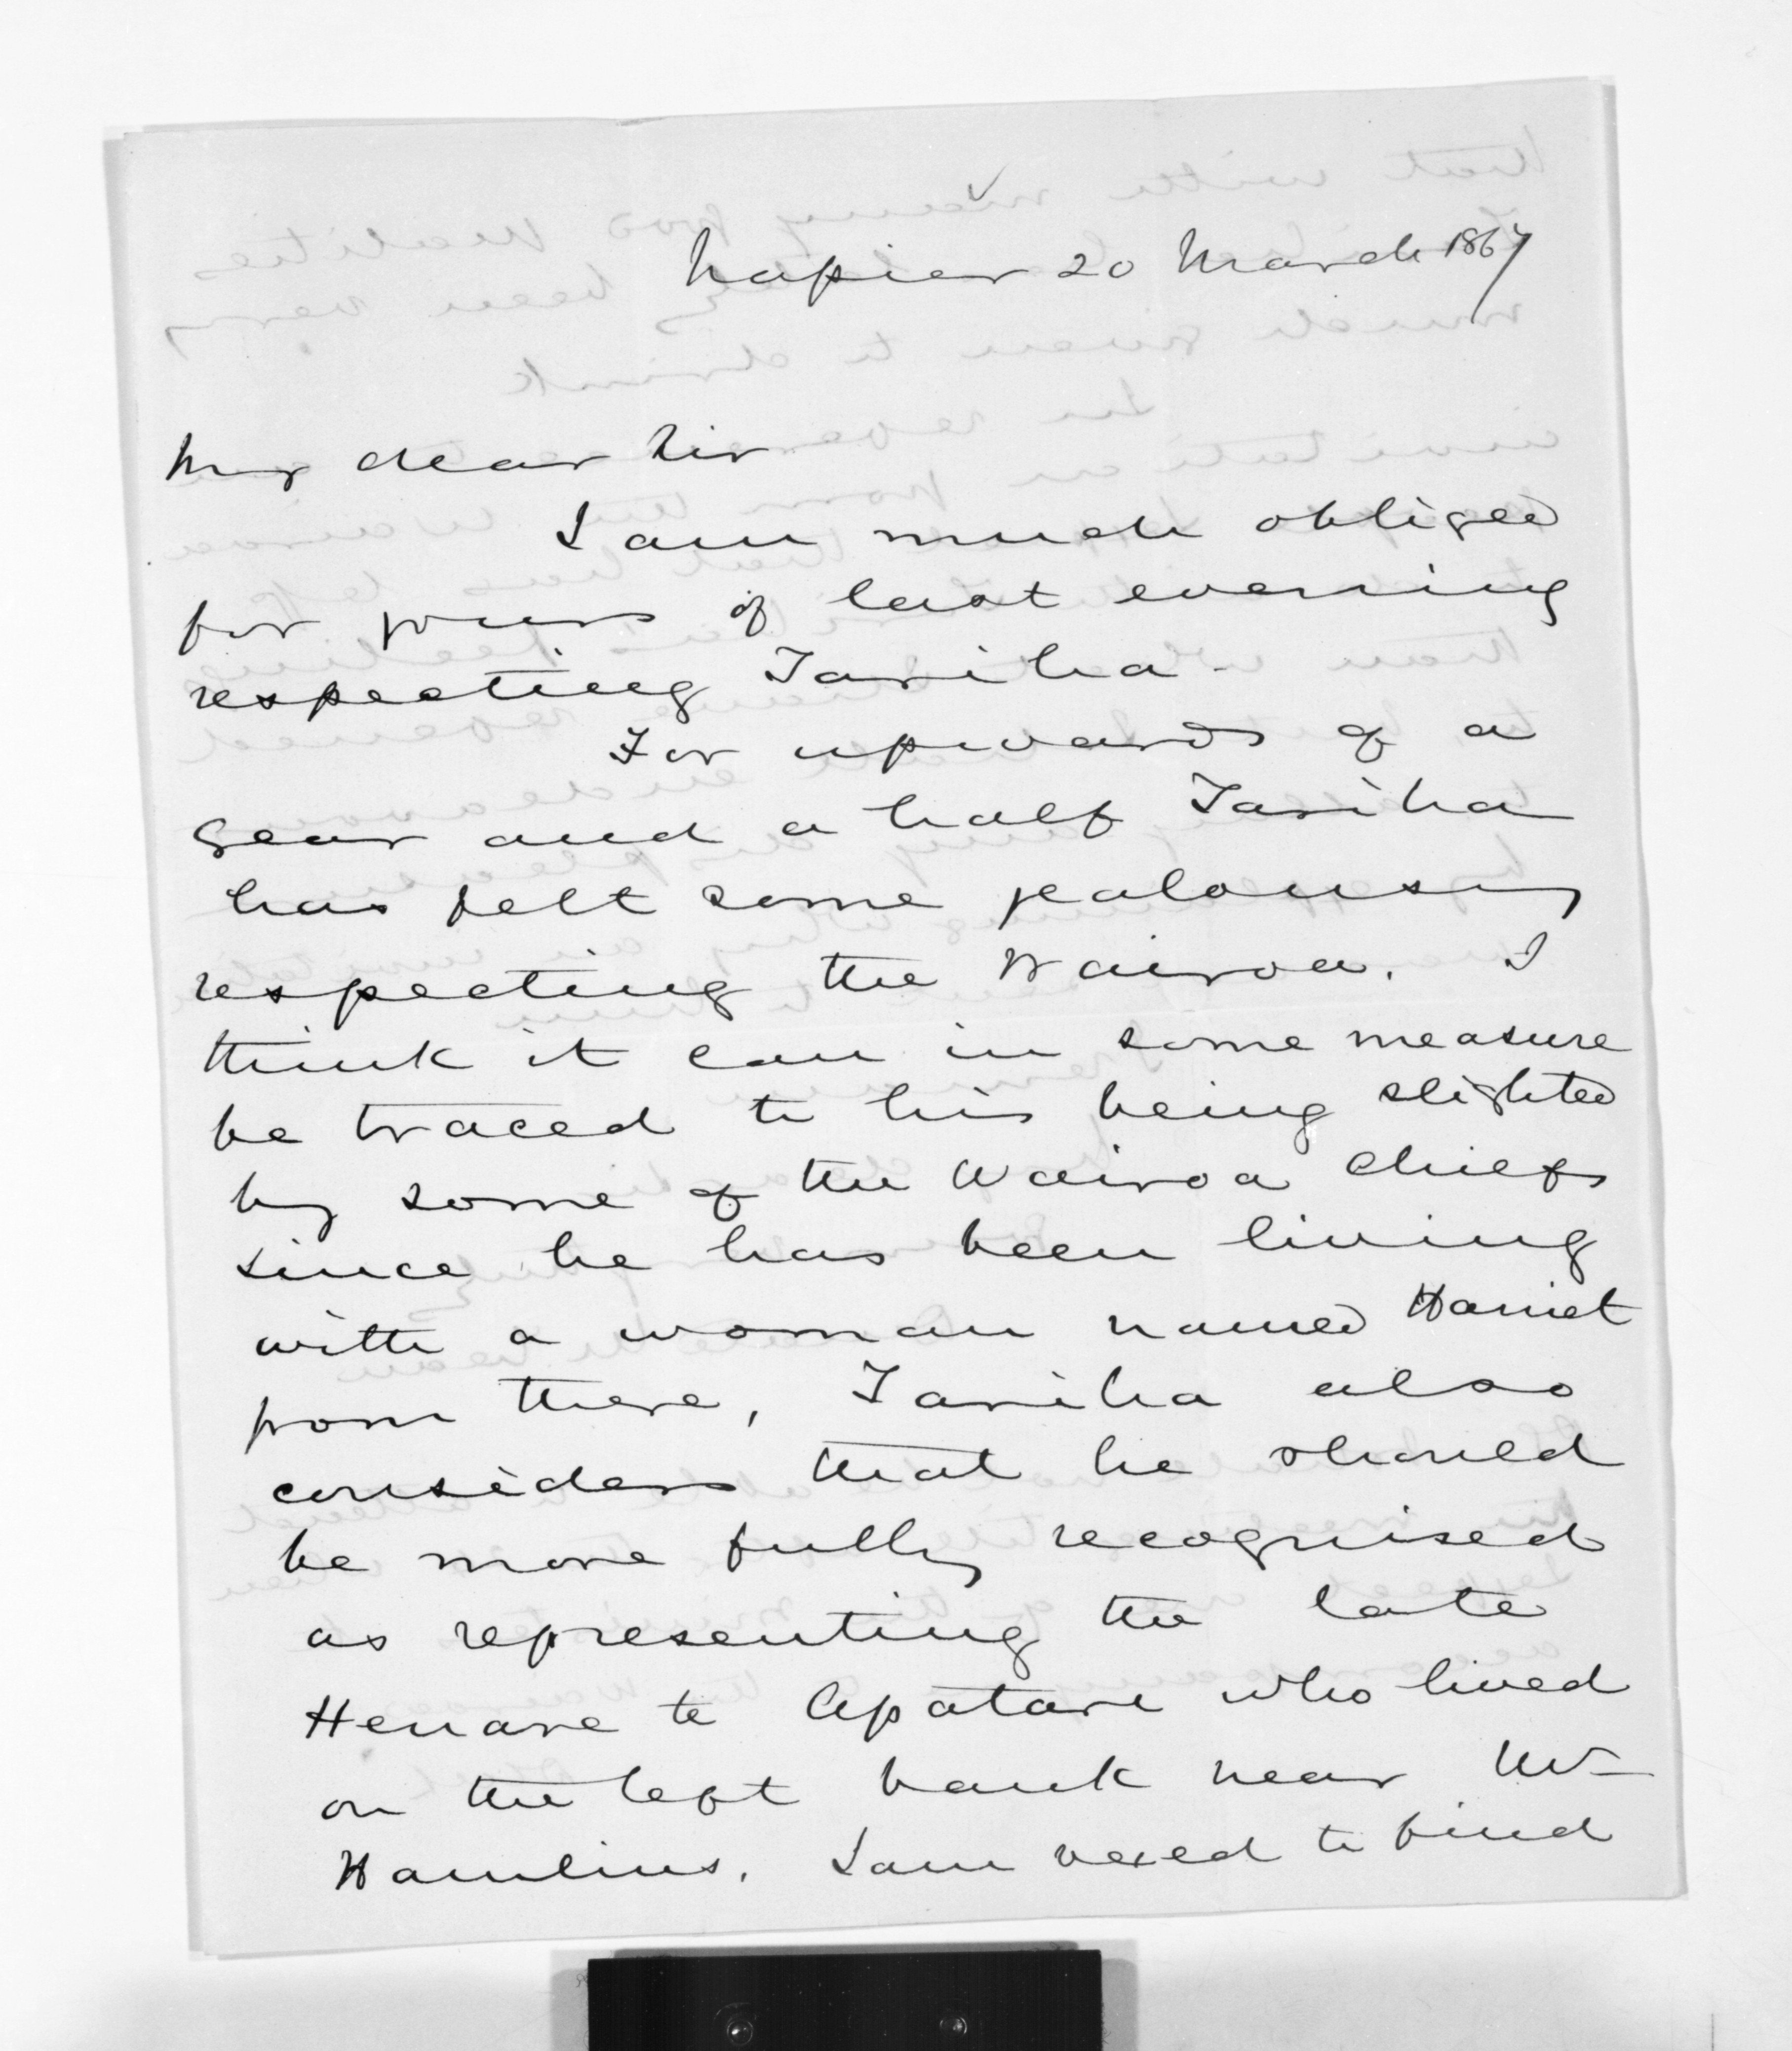 Napier 20 March 1867
My dear Sir
I am much obliged
for yours of last evening
respecting Tariha -
For upwards of a
year and a half Tariha
has felt some jealousy
respecting the Wairoa. I
think it can in some measure
be traced to his being slighted
by some of the Wairoa Chiefs
since he has been living
with a woman named Harriet
from there, Tariha also
considers that he should
be more fully recognised
as representing the late
Henare te Apatari who lived
on the left bank near Mr
Hamlins. I am vexed to find